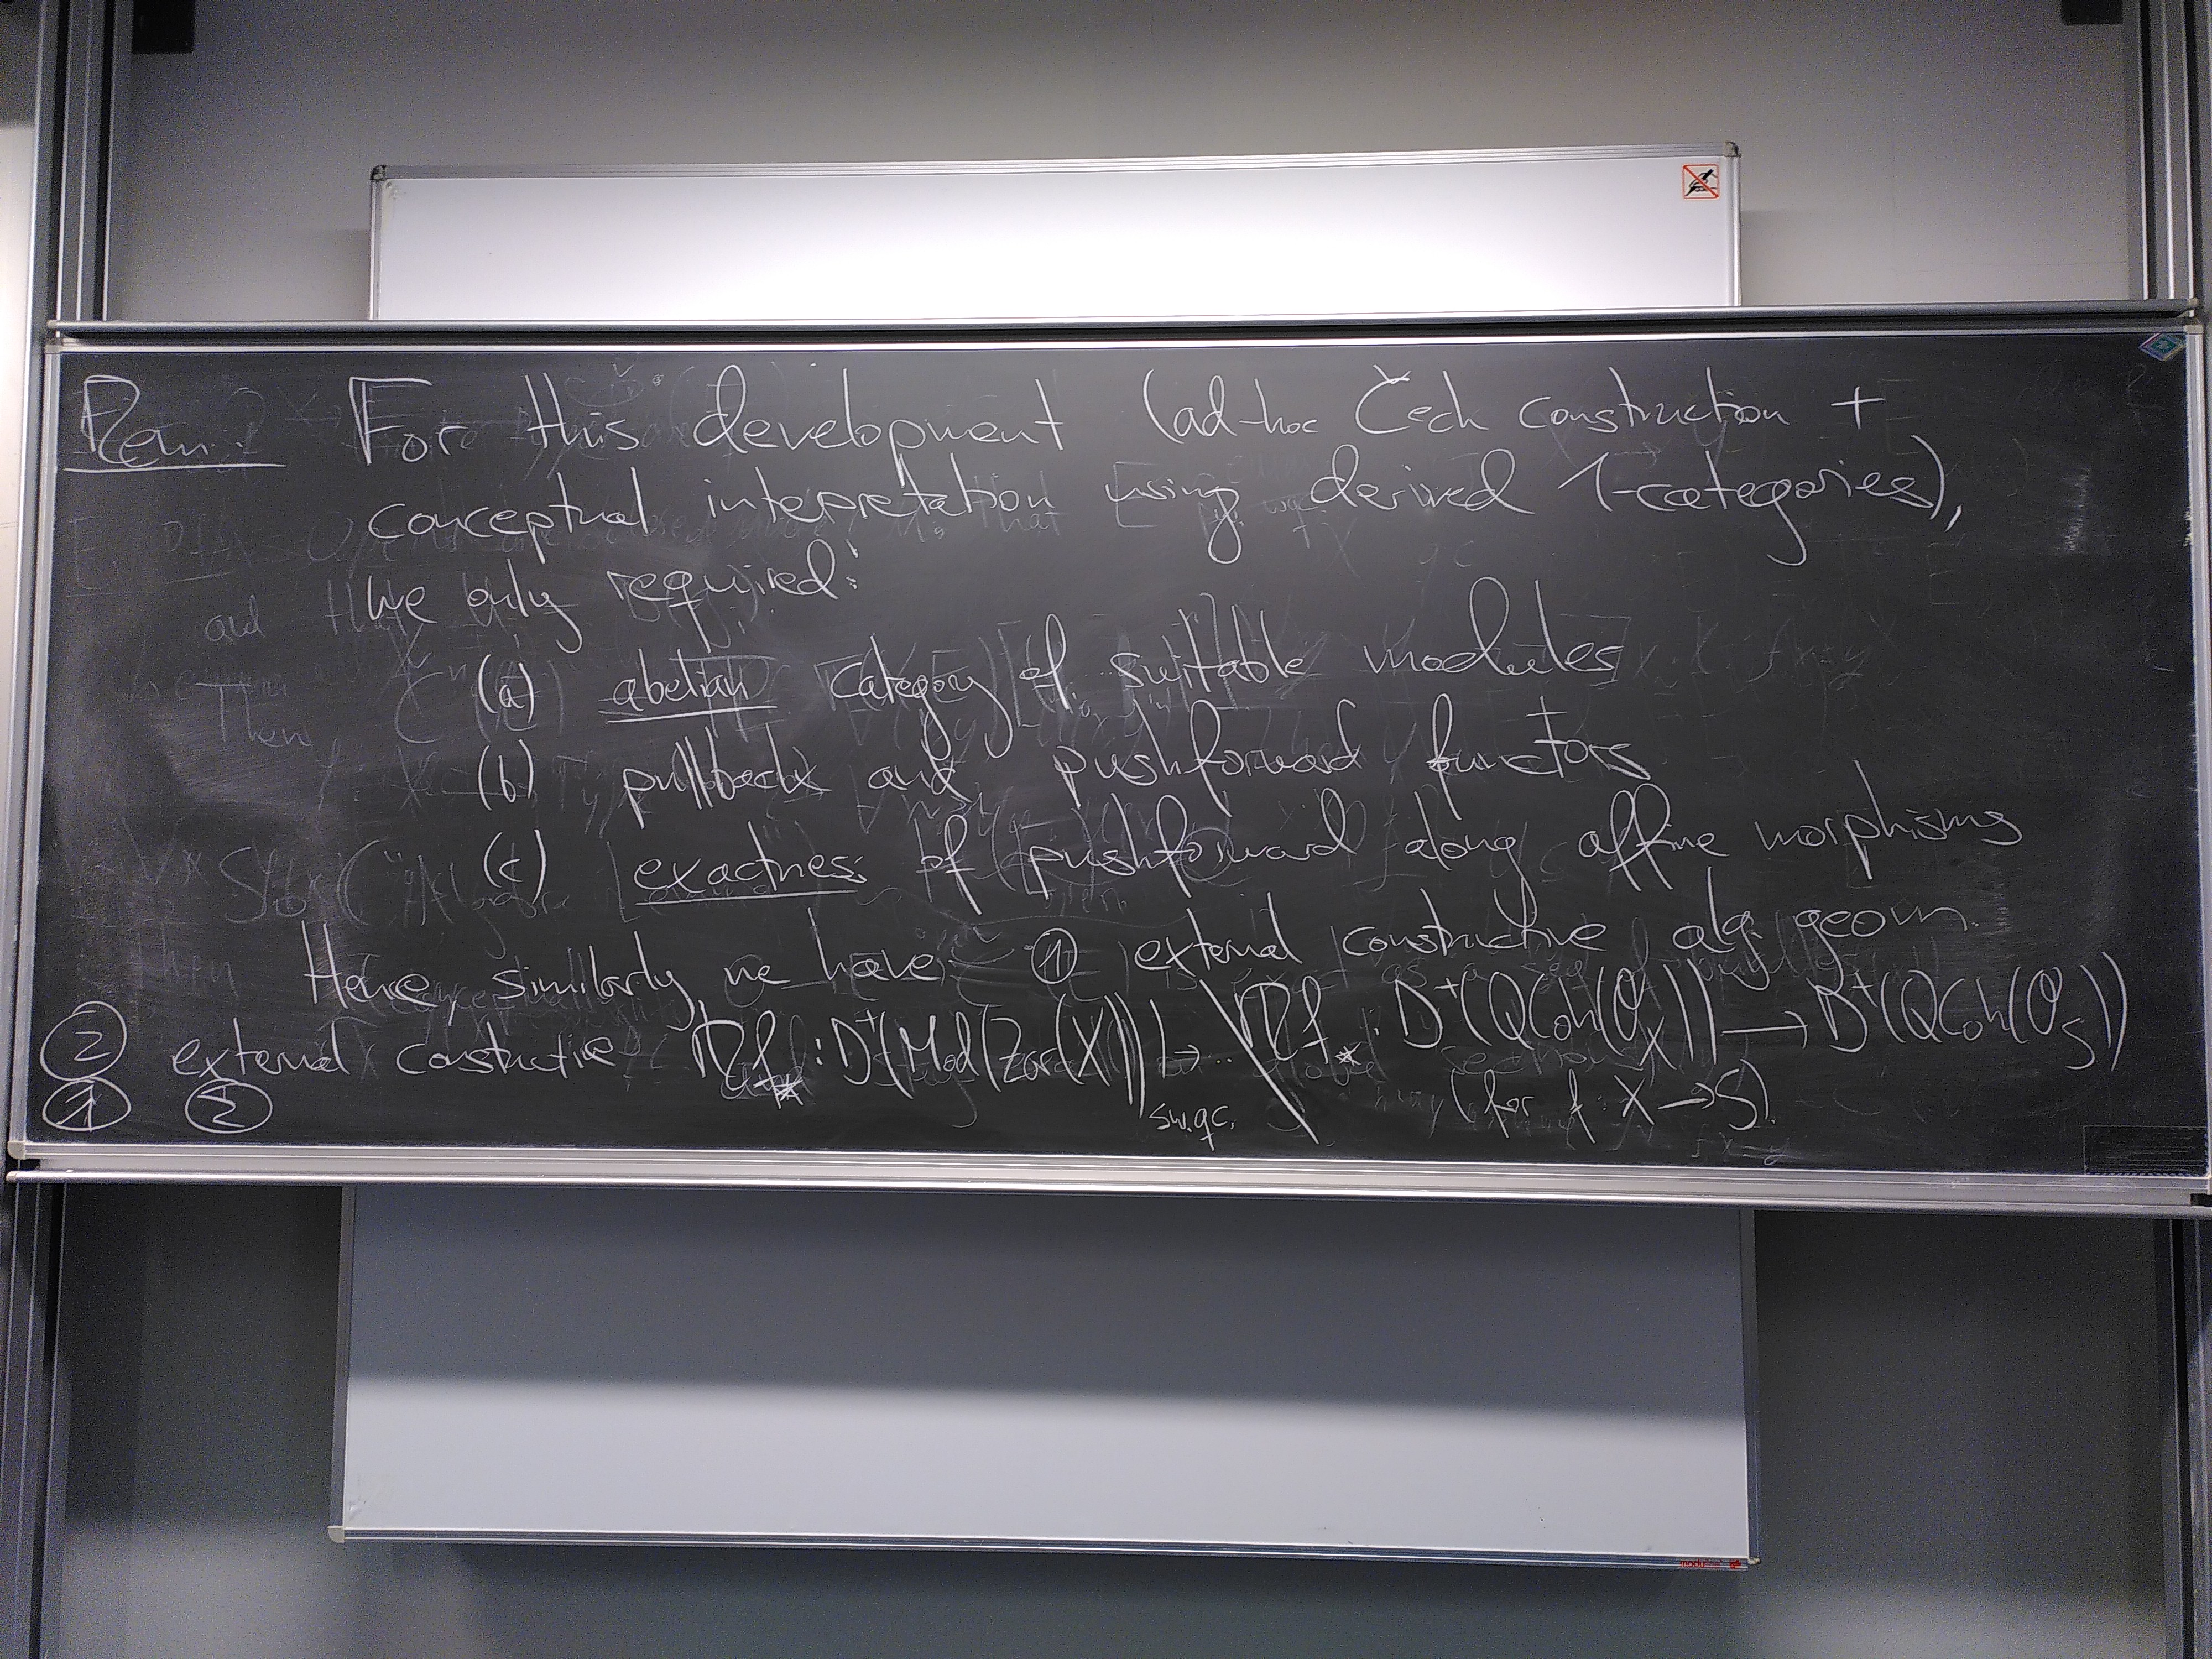 Rem.: For this development (ad-hoc Čech construction +
conceptual interpretation using derived 1-categories),
we only required:
(a) abelian category of suitable modules
(b) pullback and pushforward functors
(c) exactness of pushforward along affine morphisms
Hence, similarly, we have: ① external constructive alg. geom.
Rf_* : D⁺(QCoh(O_X)) → D⁺(QCoh(O_S))
(for f : X → S)
② external constructive Rf_* : D⁺(Mod(Zar(X))_sw.qc. → ...
① ②